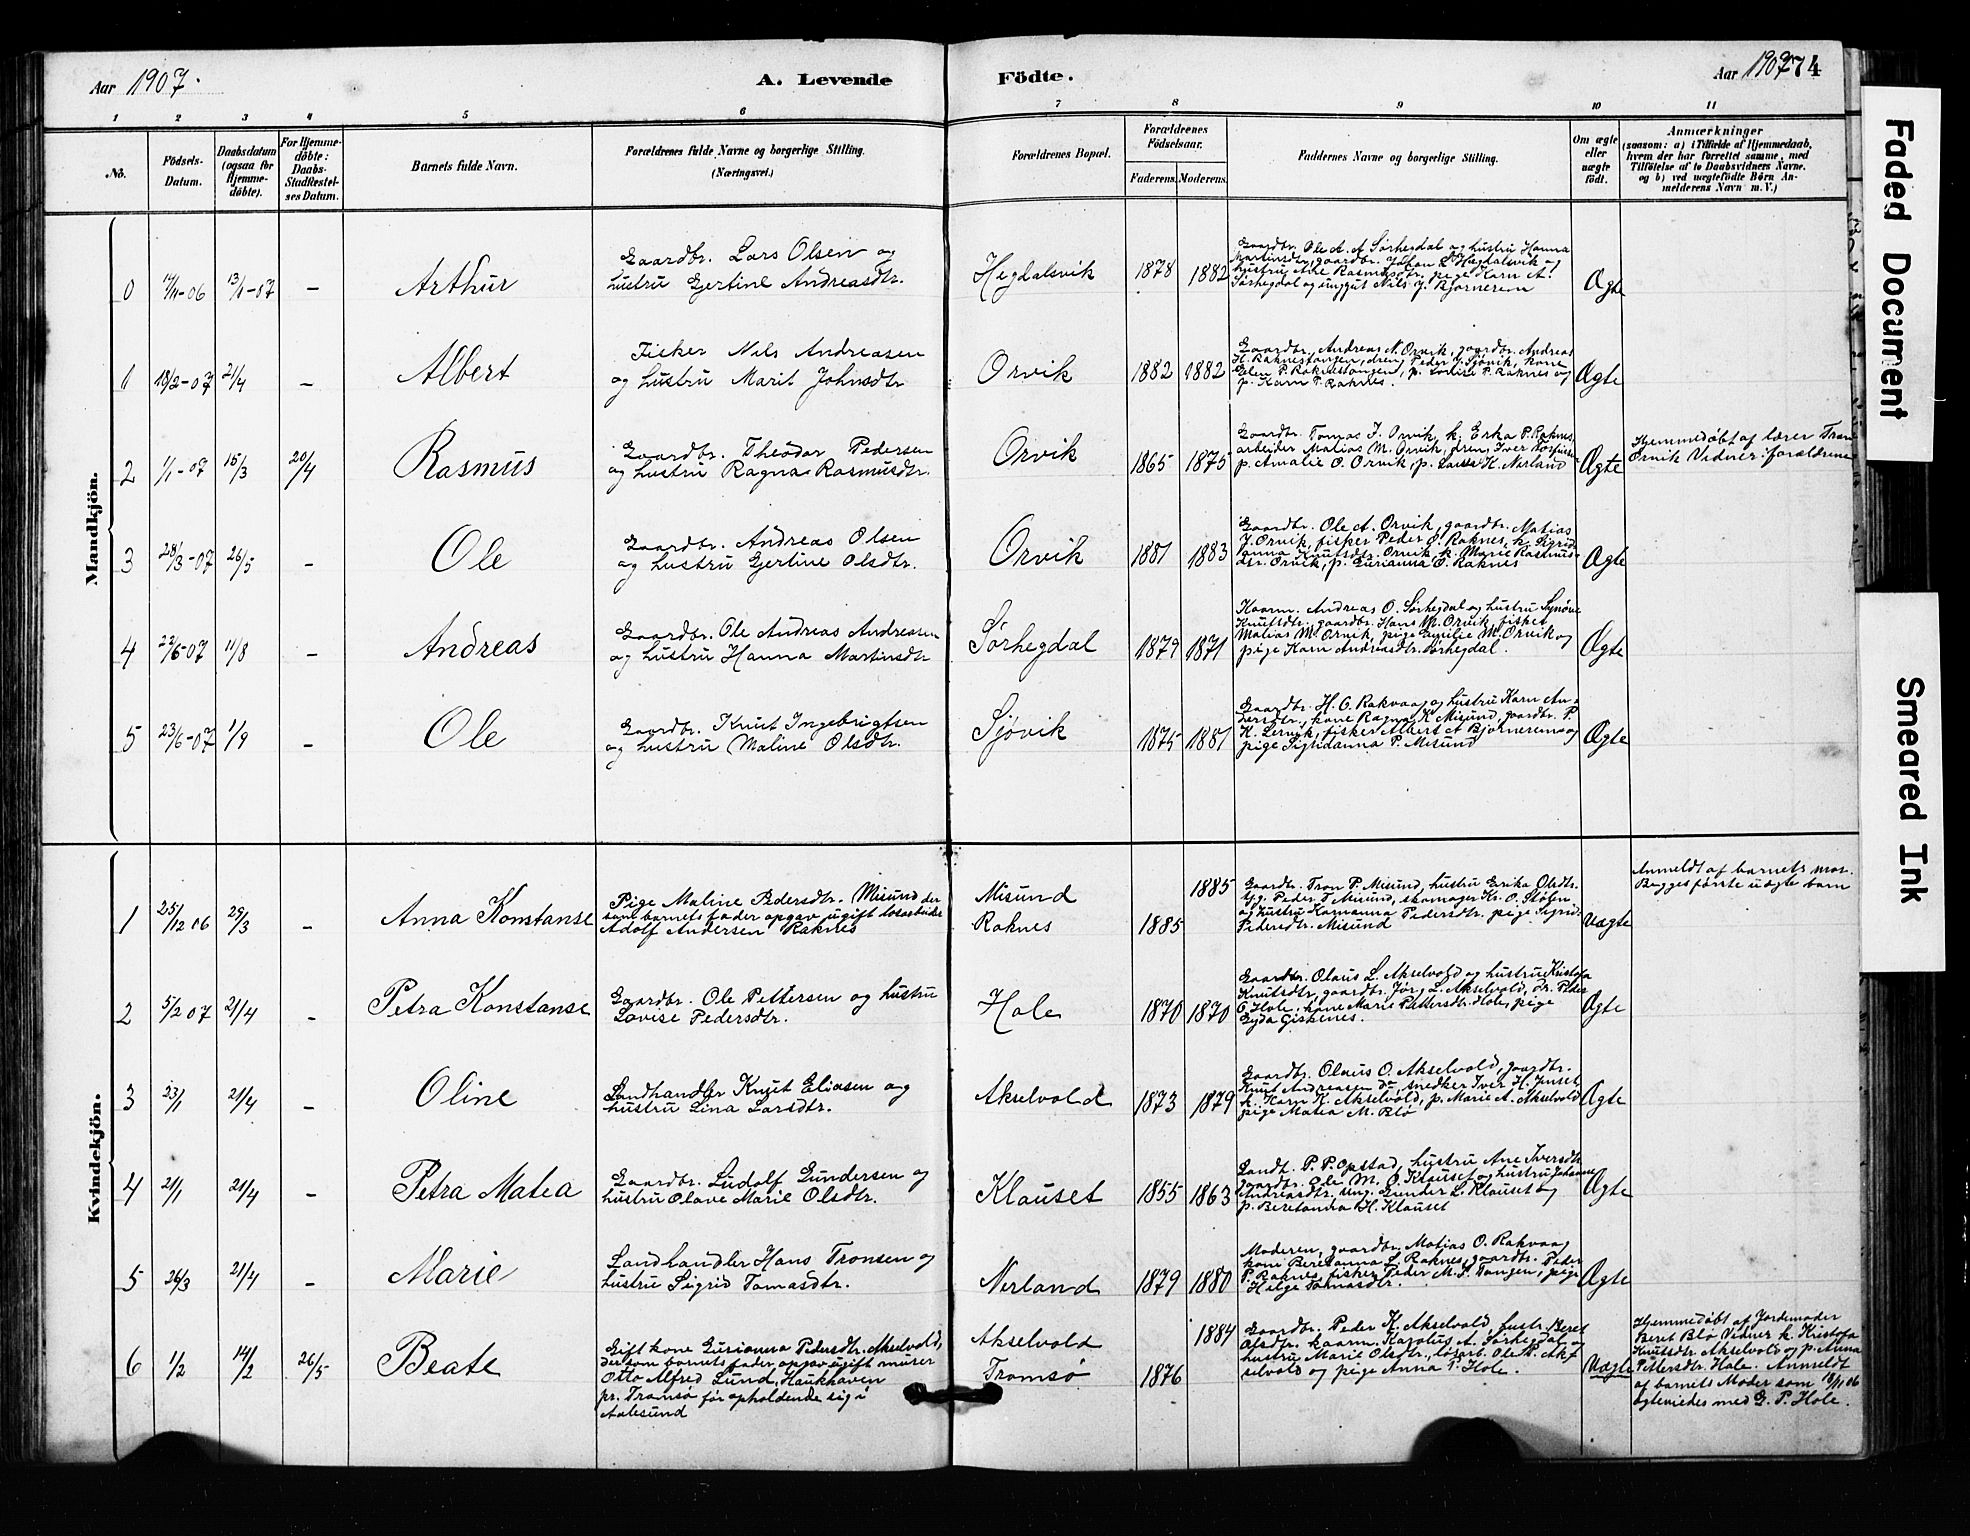 Aar 1907.
A. Levende
Födte.
Aar 1907 74
1 2 3 4 5 6 7 8 9 10 11
No.
Födsels-
Datum.
Daabsdatum
(ogsaa for
Hjemme-
döbte).
For Hjemme-
döbte:
Daabs-
Stadfæstel-
ses Datum.
Barnets fulde Navn.
Forældrenes fulde Navne og borgerlige Stilling.
(Næringsvei.)
Forældrenes Bopæl.
Forældrenes
Födselsaar.
Faderens. Moderens.
Faddernes Navne og borgerlige Stilling.
Om ægte
eller
uægte
født.
Anmærkninger
(saasom: a) i Tilfælde af Hjemmedaab,
hvem der har forrettet samme, med
Tilföielse af to Daabsvidners Navne,
og b) ved uægtefödte Börn An-
melderens Navn m. V.)
Mandkjön.
0 14/11-06 13/1-07 – Arthur
Gaardbr. Lars Olsen og
hustru Gjertine Andreasdtr.
Hegdalsvik 1878 1882
Gaardbr. Ole A. A Sørhegdal og hustru Hanna
Martinsdtr, gaardbr. Johan L Hegdalsvik og
hustru Ane Rasmusdtr, pige Karn A.
Sørhegdal og unggut Nils J. Bjørnerem
Ægte
1 18/2-07 21/4 – Albert
Fisker Nils Andreasen
og hustru Marit Johnsdtr
Orvik 1882 1882
Gaardbr. Andreas N. Orvik, gaardbr. Andreas
H. Raknestangen, dreng Peder J. Sjøvik, kone
Elen P. Raknestangen, p. Lovise P. Raknes og
p. Karn P. Raknes.
Ægte
2 1/1-07 15/3 20/4 Rasmus
Gaardbr. Theodor Pedersen
og hustru Ragna Rasmusdtr.
Orvik 1865 1875
Gaardbr. Tomas J. Orvik, k. Erka P. Raknes,
arbeider Matias M. Orvik, dren Iver
p. Amalie O. Orvik, p. H. Nerland
Ægte
Hjemmedøbt af lærer Tron
Orvik Vidner: forældrene
3 28/3-07 26/5 – Ole
Gaardbr. Andreas Olsen
og hustru Gjertine Olsdtr.
Orvik 1881 1883
Gaardbr. Ole A. Orvik, gaardbr. Matias
J. Orvik, fisker Peder O. Raknes, k. Sigrid
anna Knutsdtr. Orvik, k. Marie Rasmus-
dtr. Orvik, p. Gurianna O. Raknes
Ægte
4 22/6-07 11/8 – Andreas
Gaardbr. Ole Andreas Andreasen
og hustru Hanna Martinsdtr
Sørhegdal 1879 1871
Kaarm. Andreas O. Sørhegdal og hustru Synøve
Knutsdtr. gaardbr. Hans M. Orvik, fisker
Matias M. Orvik, pige Emilie M. Orvik og
pige Karn Andreasdtr. Sørhegdal.
Ægte
5 23/6-07 1/9 – Ole
Gaardbr. Knut Ingebrigtsen
og hustru Maline Olsdtr.
Sjøvik 1875 1881
Gaardbr. H. O. Rakvaag og hustru Karn An-
dersdtr., kone Ragna K Misund, gaardbr. P.
K. Lervik, fisker Albert A Bjørnerem og
pige Sigridanna P. Misund
Ægte
Kvindekjön.
1 25/12 06 29/3 – Anna Konstanse
Pige Maline Pedersdtr. Misund der
som barnets fader opgav ugift løsarbeider
Adolf Andersen Raknes
Misund
Raknes 1885 1885
Gaardbr. Tron P. Misund, hustru Erika Olsdtr.
Ug. Peder T Misund, skomager Kr. O. Stølen
og hustru Karnanna Pedersdtr. pige Sigrid
Pedersdtr. Misund
uægte
Anmeldt af barnets mor.
Begges første uægte barn
2 5/2 07 21/4 – Petra Konstanse
Gaardbr. Ole Pettersen og hustru
Lovise Pedersdtr.
Hole 1870 1870
Gaardbr. Olaus L. Akselvold og hustru Kristofa
Knutsdtr, gaardbr. Jørg. L. Akselvold, dr. Peder
O. Hole, kone Marie Pettersdtr. Hole, pige
Gyda Giskenes.
Ægte
3 23/1 21/4 – Oline
Landhandler Knut Eliasen og
hustru Lina Larsdtr.
Akselvold 1873 1879
Gaardbr. Olaus O. Akselvold, gaardbr.
Knut Andreasen do, snedker Iver H. Jenset
k. Karn K. Akselvold, p. Marie A. Akselvold
pige Matea M. Blø
Ægte
4 21/1 21/4 – Petra Matea
Gaardbr. Ludolf Gundersen og
hustru Olave Marie Olsdtr.
Klauset 1855 1863
Landh. P. P. Opstad, hustru Ane Iversdtr
gaardbr. Ole M. O. Klauset og hustru Johanne
Andreasdtr, ung. Gunder L. Klauset og
p. Beretanna H. Klauset
Ægte
5 26/3 21/4 – Marie
Landhandler Hans Tronsen og
hustru Sigrid Tomasdtr.
Nerland 1879 1880
Moderen, gaardbr. Matias O. Rakvaag
kone Beretanna L. Raknes, gaardbr. Peder
P. Raknes, fisker Peder M. S. Tangen, pige
Helge Tomasdtr.
Ægte
6 1/2 14/2 26/5 Beate
Gift kone Gurianna Pedersdtr. Akselvold,
der som barnets fader opgav ugift murer
Otto Alfred Lund, Haukhaven
pr. Tromsø før opholdende sig i
Aalesund
Akselvold
Tromsø 1876 1884
Gaardbr. Peder K. Akselvold, hustr. Beret
Olsdtr. kaarm. Karolus A. Sørhegdal og
hustru Marie Olsdtr., løsarb. Ole P. Ak-
selvold og pige Anna P. Hole.
Uægte
Hjemmedøbt af Jordemoder
Beret Blø Vidner k. Kristofa
Knutsdtr Akselvold og p. Anna
Pettersdtr. Hole. Anmeldt
af barnets Moder som 18/11 06
ægteviedes med G. P. Hole.
Faded Document
Smeared Ink